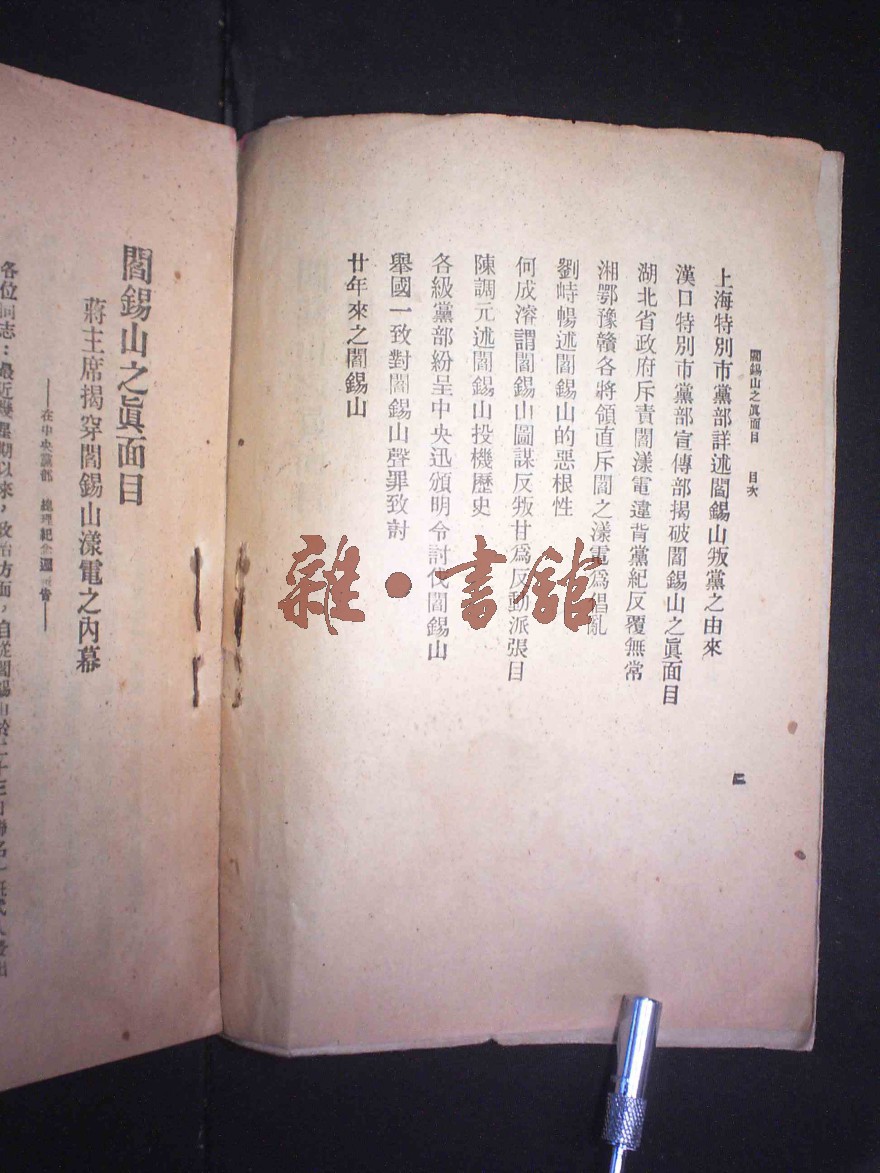 閻錫山之眞面目 目次
上海特別市黨部詳述閻錫山叛黨之由來
漢口特別市黨部宣傳部揭破閻錫山之眞面目
湖北省政府斥責閻漾電違背黨紀反覆無常
湘鄂豫贛各將領直斥閻之漾電爲倡亂
劉峙暢述閻錫山的惡根性
何成濬謂閻錫山圖謀反叛甘爲反動派張目
陳調元述閻錫山投機歷史
各級黨部紛呈中央迅頒明令討伐閻錫山
舉國一致對閻錫山聲罪致討
廿年來之閻錫山
二
雜·書館
閻錫山之眞面目
蔣主席揭穿閻錫山漾電之內幕
——在中央黨部 總理紀念週
各位同志：最近幾星期以來，政治方面，自從閻錫山於二十三日聯名